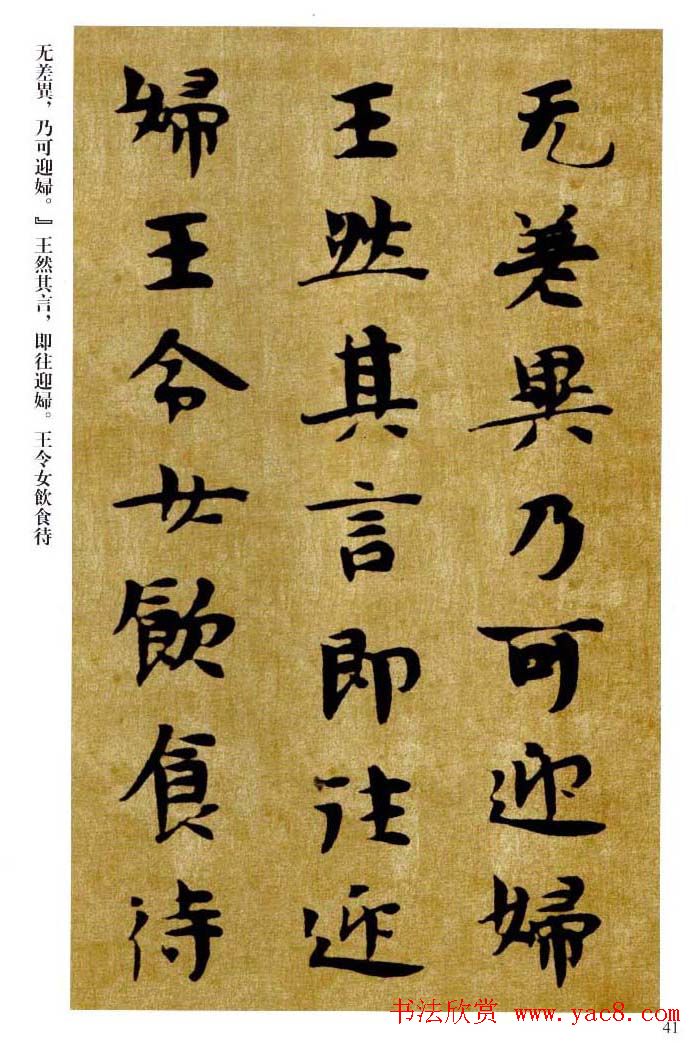 无差異乃可迎婦
王然其言即往迎
婦王令女飲食待
无差異，乃可迎婦。』王然其言，即往迎婦。王令女飲食待
书法欣赏 www.yac8.com
41